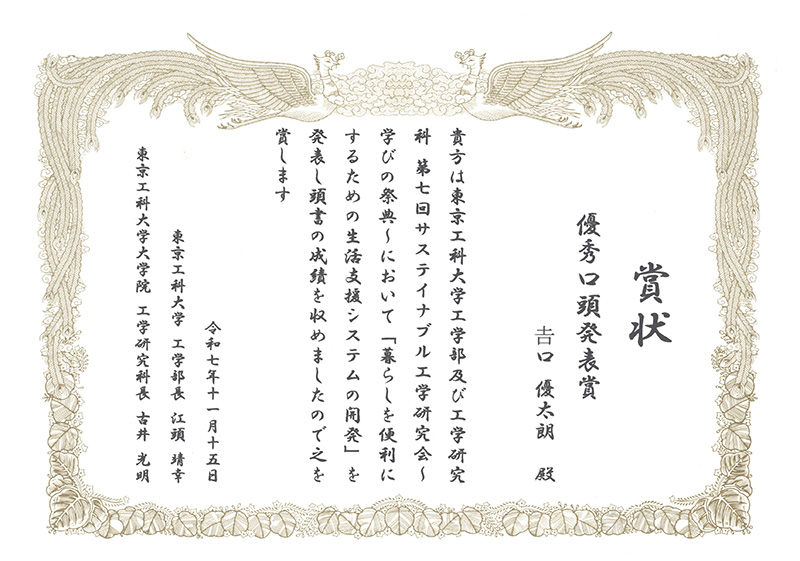 賞状
優秀口頭発表賞
𠮷口 優太朗 殿
貴方は東京工科大学工学部及び工学研究
科 第七回サステイナブル工学研究会～
学びの祭典～において「暮らしを便利に
するための生活支援システムの開発」を
発表し頭書の成績を収めましたので之を
賞します
令和七年十一月十五日
東京工科大学 工学部長 江頭 靖幸
東京工科大学大学院 工学研究科長 古井 光明